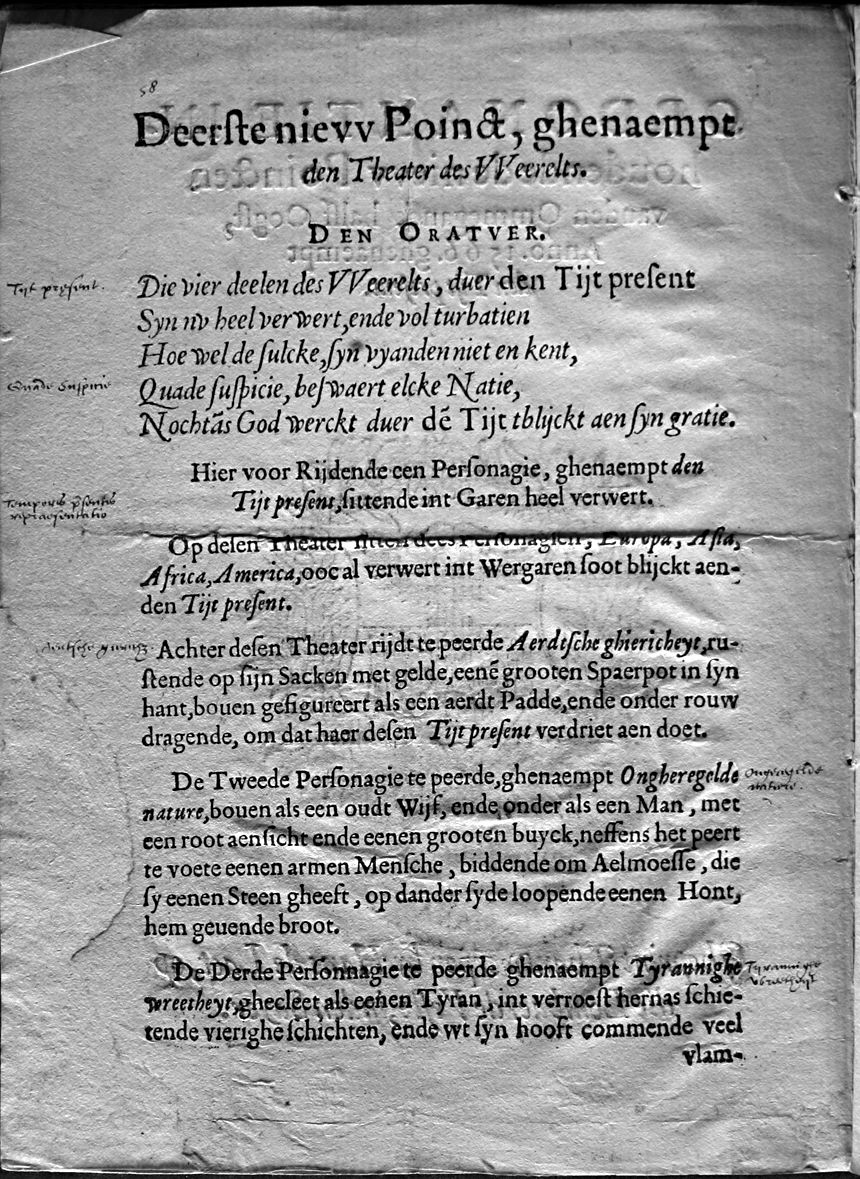 58
Deerste nievv Poinct, ghenaempt
den Theater des VVeerelts.
DEN ORATVER.
Tijt present.
Die vier deelen des VVeerelts, duer den Tijt present
Syn nv heel verwert, ende vol turbatien
Hoe wel de sulcke, syn vyanden niet en kent,
Quade suspicie
Quade suspicie, beswaert elcke Natie,
Nochtās God werckt duer dē Tijt tblijckt aen syn gratie.
Hier voor Rijdende een Personagie, ghenaempt den
Temporis p̄sentis
repraesentatio
Tijt present, sittende int Garen heel verwert.
Op desen Theater sitten dees Personagien, Europa, Asia,
Africa, America, ooc al verwert int Wergaren soot blijckt aen-
den Tijt present.
Achter desen Theater rijdt te peerde Aerdtsche ghiericheyt, ru-
stende op sijn Sacken met gelde, eenē grooten Spaerpot in syn
hant, bouen gefigureert als een aerdt Padde, ende onder rouw
dragende, om dat haer desen Tijt present verdriet aen doet.
De Tweede Personagie te peerde, ghenaempt Ongheregelde
Ongeregelde
nature.
nature, bouen als een oudt Wijf, ende onder als een Man, met
een root aensicht ende eenen grooten buyck, neffens het peert
te voete eenen armen Mensche, biddende om Aelmoesse, die
sy eenen Steen gheeft, op dander syde loopende eenen Hont,
hem geuende broot.
De Derde Personnagie te peerde ghenaempt Tyrannighe
Tyrannige
wreetheyt
wreetheyt, ghecleet als eenen Tyran, int verroest hernas schie-
tende vierighe schichten, ende wt syn hooft commende veel
vlam-